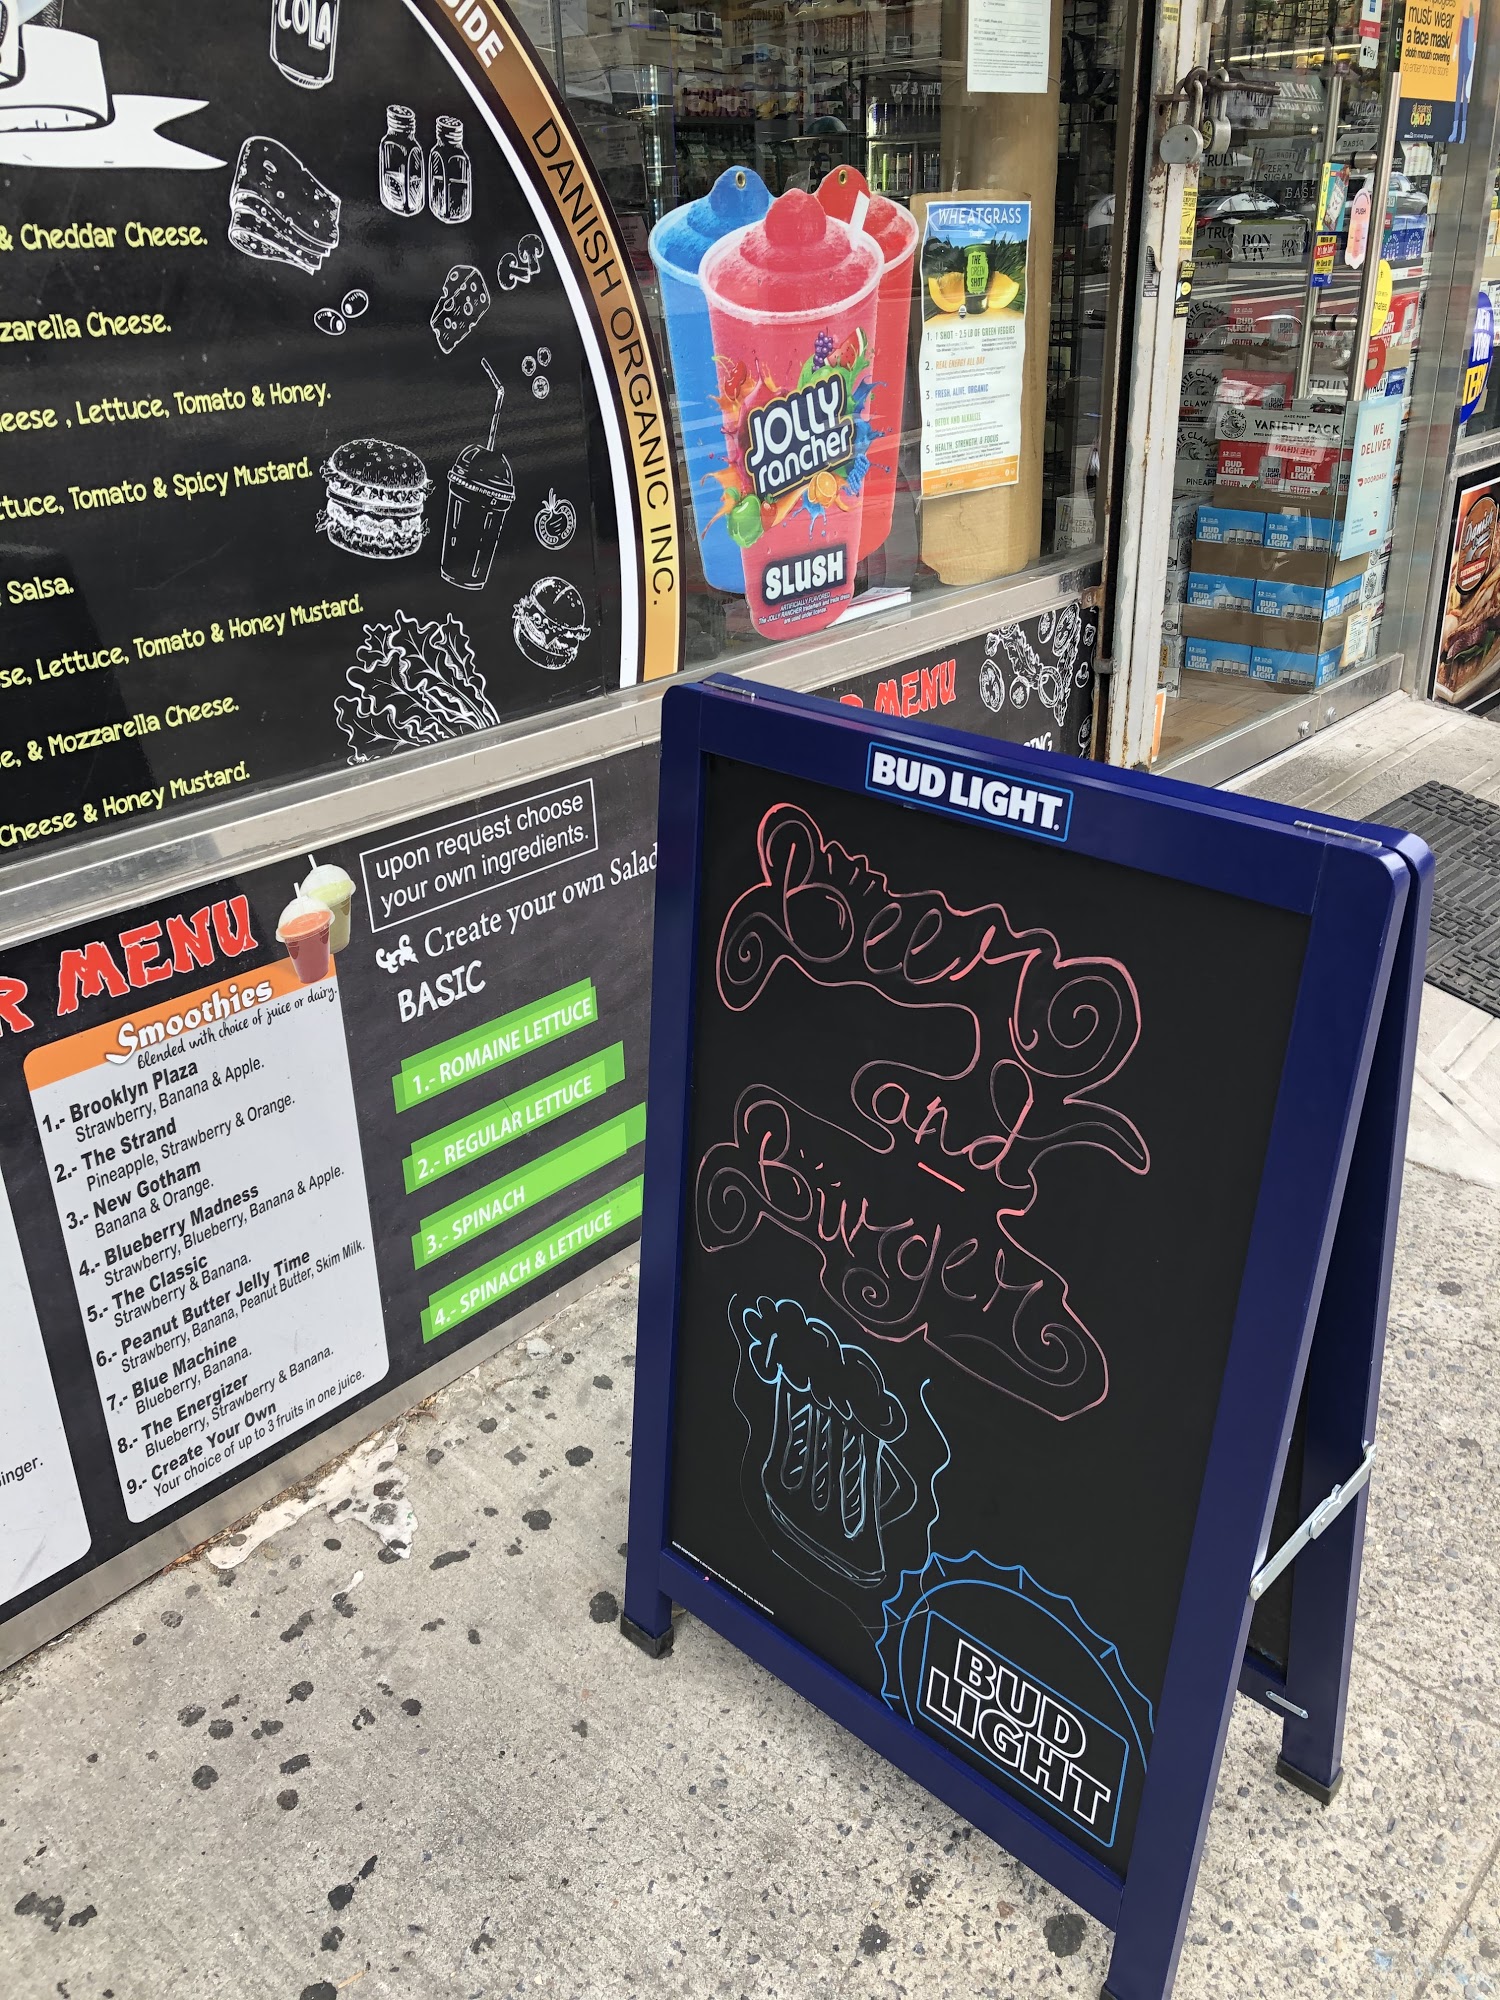 COLA
SIDE
DANISH ORGANIC INC.
& Cheddar Cheese.
zarella Cheese.
eese , Lettuce, Tomato & Honey.
ttuce, Tomato & Spicy Mustard.
Salsa.
se, Lettuce, Tomato & Honey Mustard.
e, & Mozzarella Cheese.
Cheese & Honey Mustard.
JOLLY
rancher
SLUSH
ARTIFICIALLY FLAVORED
WHEATGRASS
THE
GREEN
SHOT
1. 1 SHOT = 2.5 LB OF GREEN VEGGIES
2. REAL ENERGY ALL DAY
3. FRESH, ALIVE, ORGANIC
4. DETOX AND ALKALIZE
5. HEALTH, STRENGTH, & FOCUS
must wear
a face mask/
cloth mouth covering
TRULY
BON
VARIETY PACK
BUD
LIGHT
BUD
LIGHT
WE
DELIVER
DOORDASH
MENU
R MENU
Smoothies
Blended with choice of juice or dairy.
1.- Brooklyn Plaza
Strawberry, Banana & Apple.
2.- The Strand
Pineapple, Strawberry & Orange.
3.- New Gotham
Banana & Orange.
4.- Blueberry Madness
Strawberry, Blueberry, Banana & Apple.
5.- The Classic
Strawberry & Banana.
6.- Peanut Butter Jelly Time
Strawberry, Banana, Peanut Butter, Skim Milk.
7.- Blue Machine
Blueberry, Banana.
8.- The Energizer
Blueberry, Strawberry & Banana.
9.- Create Your Own
Your choice of up to 3 fruits in one juice.
inger.
upon request choose
your own ingredients.
Create your own Salad
BASIC
1.- ROMAINE LETTUCE
2.- REGULAR LETTUCE
3.- SPINACH
4.- SPINACH & LETTUCE
BUD LIGHT
Beer
and
Bürger
BUD
LIGHT